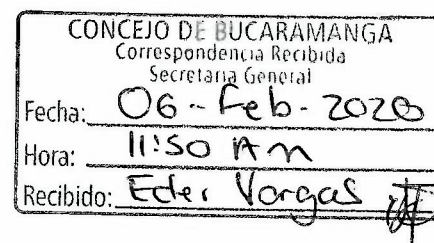 CONCEJO DE BUCARAMANGA
Correspondencia Recibida
Secretaria General
Fecha: 06-Feb-2020
Hora: 11:50 AM
Recibido: Eder Vargas